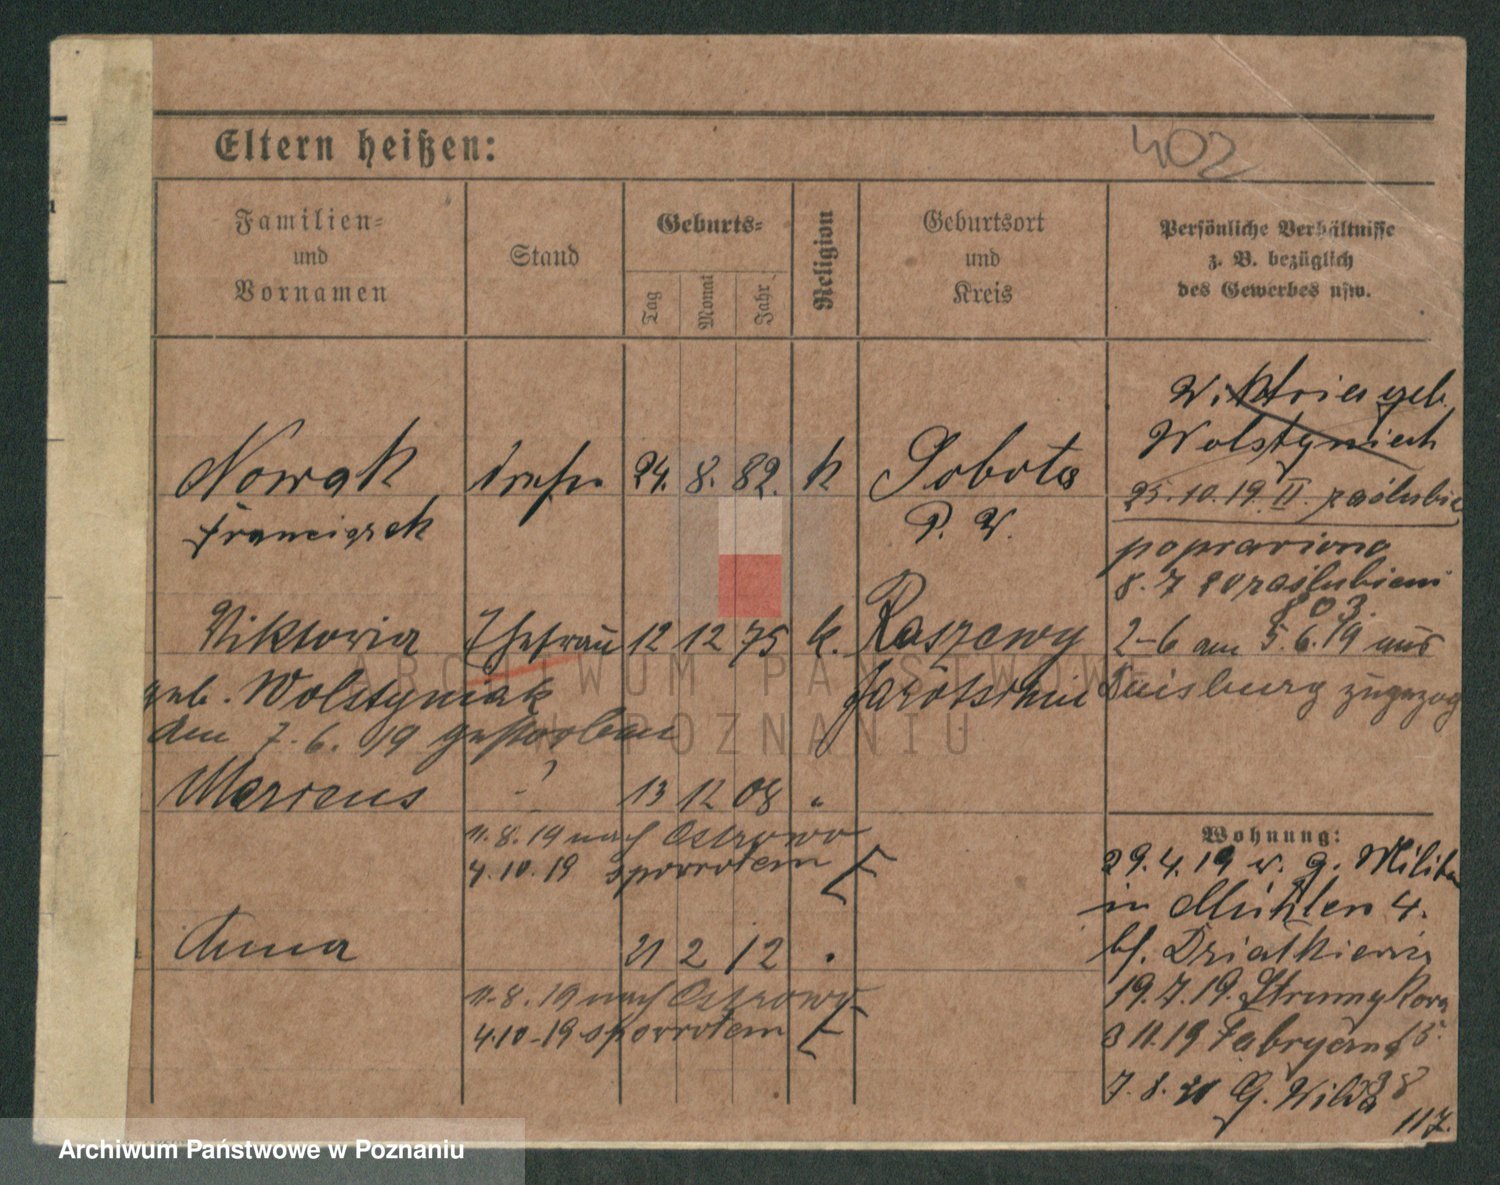 402
Eltern heißen:
Familien-
und
Vornamen
Stand
Geburts-
Tag
Monat
Jahr
Religion
Geburtsort
und
Kreis
Persönliche Verhältnisse
z. B. bezüglich
des Gewerbes usw.
Wiktria geb.
Wolstyniech
25.10.19. II. zaślubie
poprawiono
8.7 20 zaślubieni
803.
2-6 am 5.6.19 aus
Duisburg zugezog
Nowak 24. 8. 82. k Sobota
Franciszek P. W.
Viktoria Ehefrau 12 12 75 k. Raszewy
geb. Wolstyniak Jarotschin
den 7.6.19 gestorben
Marcus - 13 12 08 "
11.8.19 nach Ostrowo
4.10.19 zpowrotem
Anna 21 2 12 "
11.8.19 nach Ostrowo
4.10-19 spowrotem
Wohnung:
29.4.19 v. g. Militär
in Mühlen 4.
bf. Działkiewicz
19.7.19. Strumykowa
3 11.19 Fabryczna 15.
7.8.20 G. Wilda 38
117.
ARCHIWUM PAŃSTWOWE
W POZNANIU
Archiwum Państwowe w Poznaniu